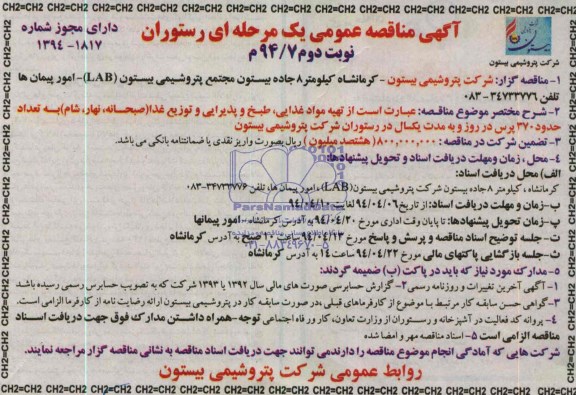 CH2=CH2 CH2=CH2 CH2=CH2 CH2=CH2 CH2=CH2 CH2=CH2 CH2=CH2 CH2=CH2 CH2=CH2 CH2=CH2 CH2=CH2
آگهی مناقصه عمومی یک مرحله ای رستوران
نوبت دوم ۹۴/۷م
دارای مجوز شماره
۱۳۹۴ -۱۸۱۷
شرکت پتروشیمی بیستون
۱- مناقصه گزار: شرکت پتروشیمی بیستون - کرمانشاه کیلومتر ۸ جاده بیستون مجتمع پتروشیمی بیستون (LAB)- امور پیمان ها
تلفن ۳۴۷۳۳۷۷۶-۰۸۳
۲- شرح مختصر موضوع مناقصه: عبارت است از تهیه مواد غذایی، طبخ و پذیرایی و توزیع غذا(صبحانه، نهار، شام)به تعداد
حدود ۳۷۰ پرس در روز و به مدت یکسال در رستوران شرکت پتروشیمی بیستون
۳- تضمین شرکت در مناقصه: ۸۰۰,۰۰۰,۰۰۰ ( هشتصد میلیون ) ریال بصورت واریز نقدی یا ضمانتنامه بانکی می باشد.
۴- محل ، زمان ومهلت دریافت اسناد و تحویل پیشنهادها:
الف) محل دریافت اسناد:
کرمانشاه ، کیلومتر ۸ جاده بیستون شرکت پتروشیمی بیستون (LAB) ، امور پیمان ها، تلفن ۳۴۷۳۳۷۷۶-۰۸۳
ب-زمان و مهلت دریافت اسناد: از تاریخ ۹۴/۰۴/۰۶ لغایت ۹۴/۰۴/۱۰
پ-زمان تحویل پیشنهادها: تا پایان وقت اداری مورخ ۹۴/۰۴/۲۰ به آدرس کرمانشاه، امور پیمانها
ت-جلسه توضیح اسناد مناقصه و پرسش و پاسخ مورخ ۹۴/۰۴/۱۳ ساعت ۱۰ صبح به آدرس کرمانشاه
ث-جلسه بازگشایی پاکتهای مالی مورخ ۹۴/۰۴/۲۲ ساعت ۱۴ به آدرس کرمانشاه
۵- مدارک مورد نیاز که باید در پاکت (ب) ضمیمه گردند:
۱- آگهی آخرین تغییرات و روزنامه رسمی ۲- گزارش حسابرسی صورت های مالی سال ۱۳۹۲ یا ۱۳۹۳ شرکت که به تصویب حسابرس رسمی رسیده باشد
۳- گواهی حسن سابقه کار مرتبط با موضوع از کارفرماهای قبلی ،در صورت سابقه کار در پتروشیمی بیستون ارائه رضایت نامه از کارفرما الزامی است.
۴- پروانه کد فعالیت در آشپزخانه و رستوران از وزارت تعاون، کار ورفاه اجتماعی توجه-همراه داشتن مدارک فوق جهت دریافت اسناد
مناقصه الزامی است ۵- اسناد مناقصه مهر و امضا شده
شرکت هایی که آمادگی انجام موضوع مناقصه را دارندمی توانند جهت دریافت اسناد مناقصه به نشانی مناقصه گزار مراجعه نمایند.
روابط عمومی شرکت پتروشیمی بیستون
CH2=CH2 CH2=CH2 CH2=CH2 CH2=CH2 CH2=CH2 CH2=CH2 CH2=CH2 CH2=CH2 CH2=CH2 CH2=CH2 CH2=CH2
ParsNamaddata
۰۲۱-۸۸۳۴۹۶۷۰-۵